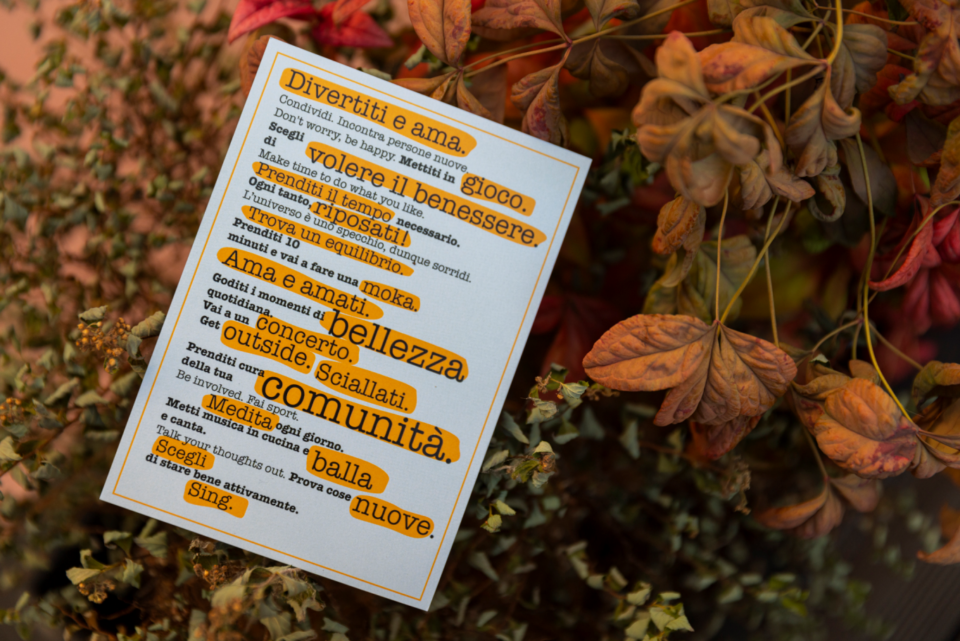 Divertiti e ama.
Condividi. Incontra persone nuove.
Don't worry, be happy. Mettiti in gioco.
Scegli di volere il benessere.
Make time to do what you like.
Prenditi il tempo necessario.
Ogni tanto, riposati!
L'universo è uno specchio, dunque sorridi.
Trova un equilibrio.
Prenditi 10 minuti e vai a fare una moka.
Ama e amati.
Goditi i momenti di bellezza
quotidiana.
Vai a un concerto.
Get outside. Sciallati.
Prenditi cura della tua comunità.
Be involved. Fai sport.
Medita ogni giorno.
Metti musica in cucina e balla
e canta.
Talk your thoughts out. Prova cose nuove.
Scegli
di stare bene attivamente.
Sing.